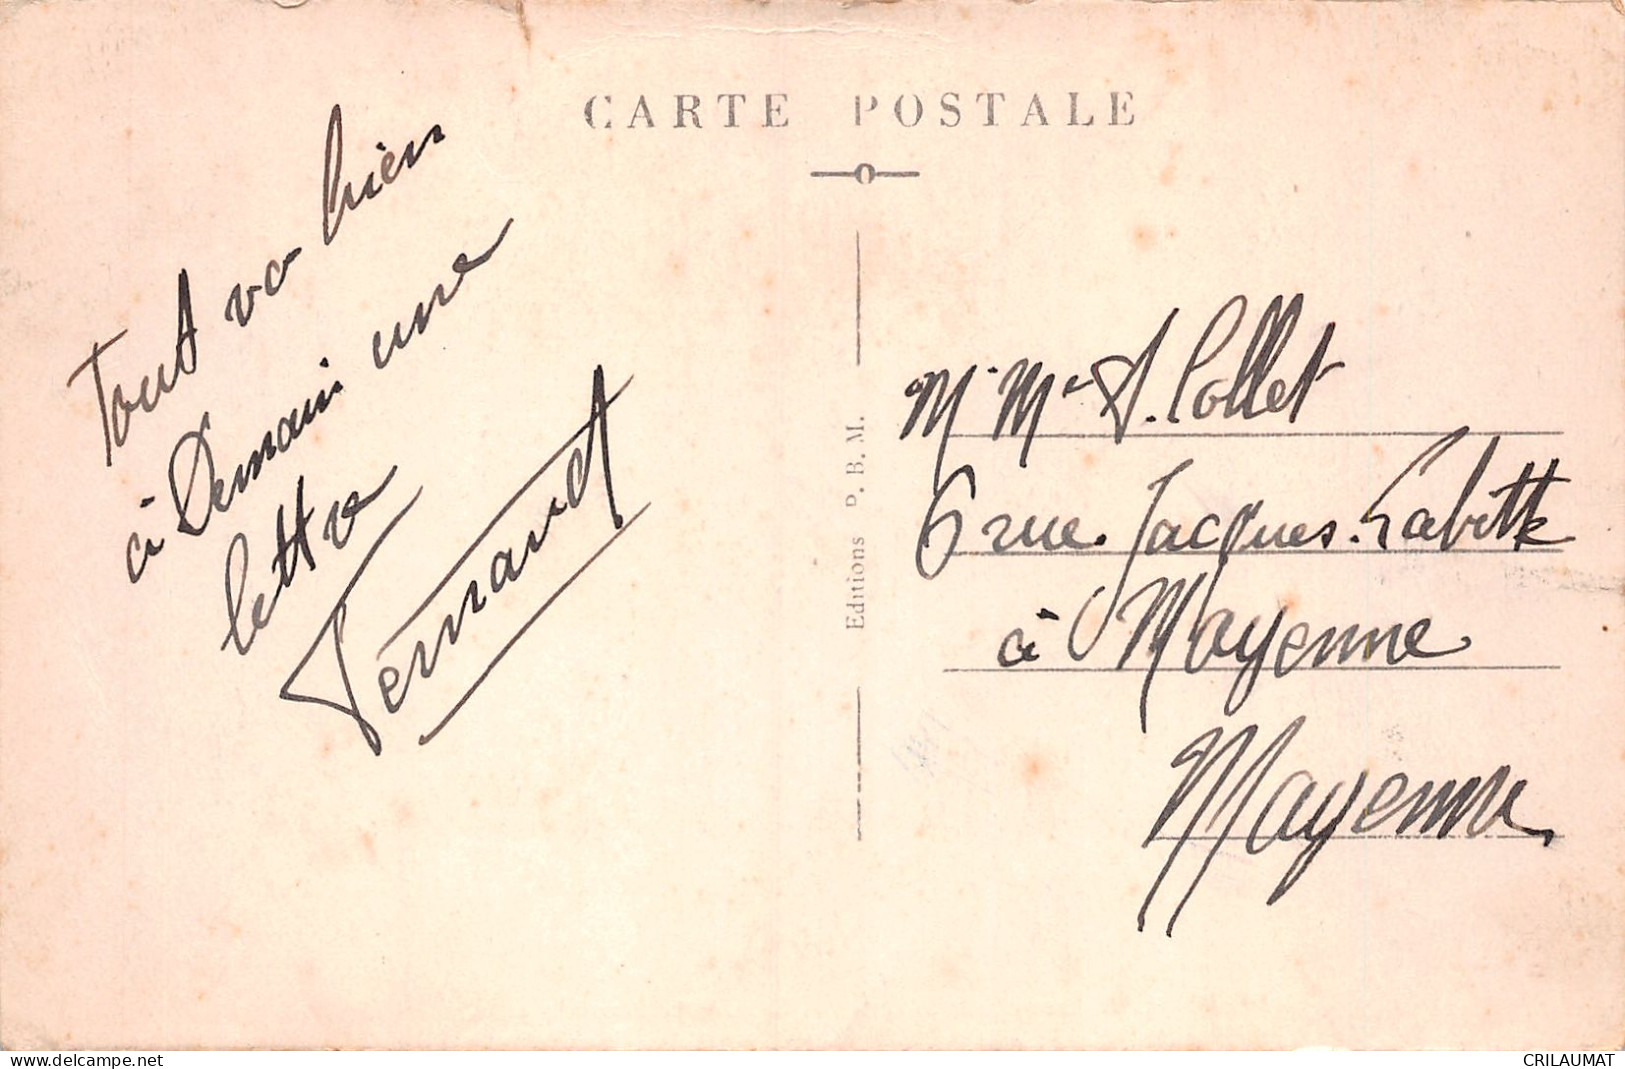 CARTE POSTALE
Tout va bien
à Demain une
lettre
Fernand
Editions P. B. M.
Mr Me A. Collet
6 rue Jacques. Labitte
à Mayenne
Mayenne
www.delcampe.net
CRILAUMAT